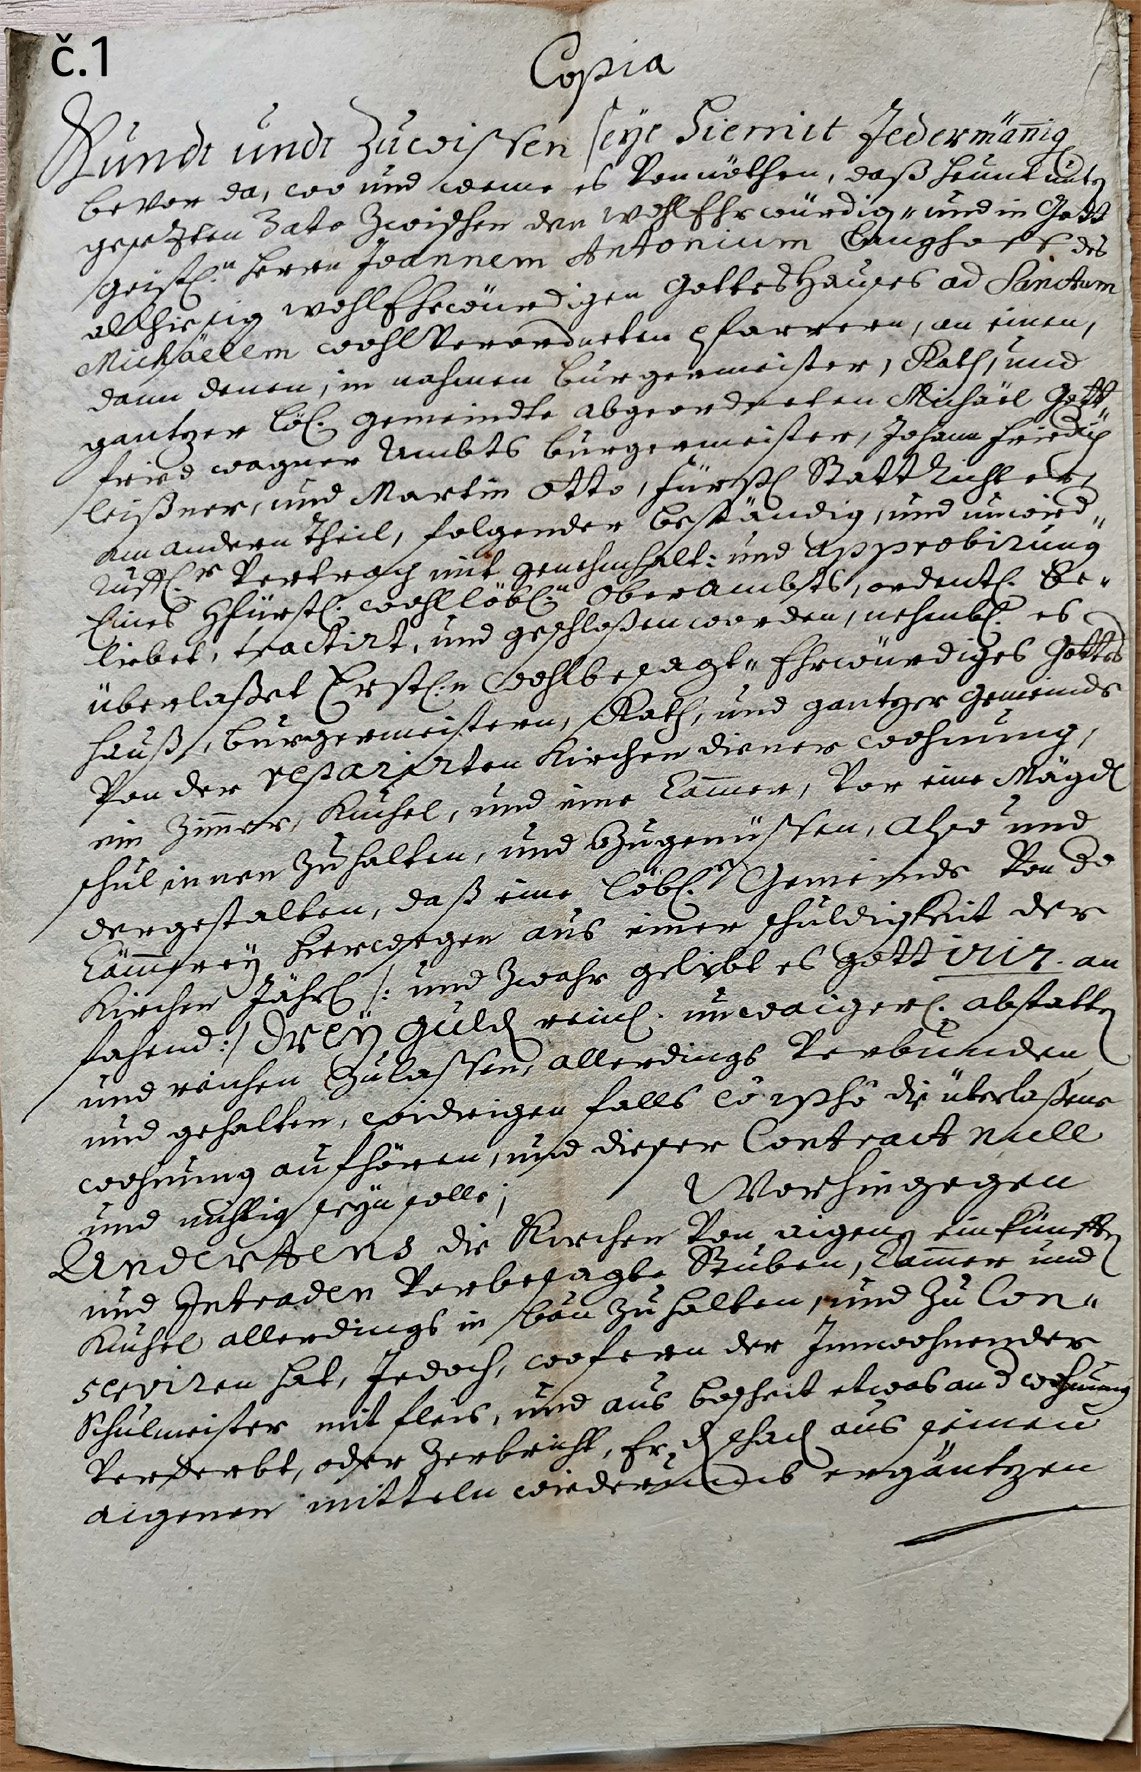 č.1
Copia
Kundt undt Zuwissen seye hiemit Jedermännig
bevor da, wo und weme es Vonnöthen, daß heunt unten
gesezten Dato Zwischen den WohlEhrwürdig„ und in Gott
geistl:n Herrn Joannem Antonium des
allhiesig WohlEhrwürdigen GottesHauses ad Sanctum
Michäelem wohlVerordneten Pfarrern, an einen,
dann denen, in nahmen burgermeister, Rath, und
gantzer löbl. gemeindte abgeordneten Michäel Gott„
fried Wagner Ambts burgermeister, Johann Friedrich
leißner, und Martin Otto, fürstl Statt Richter,
am andern Theil, folgender beständig, und unwied„
ruffl:r Vertrag mit genehmhalt: und approbirung
Eines Hfürstl. wohllöbl:n OberAmbts, ordentl. be„
liebet, tractirt, und geschloßen worden, nehmbl. es
überlaßet Erstl:n wohlbesagt„ Ehrwürdiges Gottes
Hauß, burgermeistern, Rath, und gantzer gemeinde
Von der reparirten Kirchen diener wohnung,
ein Zimmer, Kuchel, und eine Cammer, Vor eine Mägdl
schul innen Zuhalten, und Zugenüssen, Also und
dergestalten, daß eine löbl. Gemeinde Von de
Cämmerey hierwegen aus einer schuldigkeit der
Kirchen Jährl /: und Zwahr geliebt es Gott 1717. an
fahend:/ drey guld reinl. unwaigerl. abstatten
und reichen Zulassen, allerdings Verbunden
und gehalten, widrigen falls die überlaßene
wohnung aufhören, und dieser Contract null
und nichtig seyn solle; Worhingegen
Andertens die Kirchen Von aigenen einkünfften
und Intraden Vorbesagte Stuben, Cammer und
Kuchel allerdings in bau Zu halten, und Zu Con„
serviren hat, Jedoch, wofern der Innwohnender
Schulmeister mit fleis, und aus boßheit etwas an d wohnung
Verderbt, oder Zerbricht, Er, d schad aus seinen
aigenen mitteln wiederumb ergäntzen